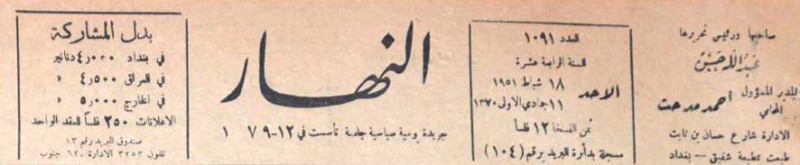 صاحبها ورئيس تحريرها
عبدالله حسين
المدير المسؤول
المحامي احمد مدحت
الادارة شارع حسان بن ثابت
طبعت بمطبعة شفيق - بغداد
العدد ١٠٩١
السنة الرابعة عشرة
الاحد
١٨ شباط ١٩٥١
١١ جمادي الاولى ١٣٧٠
ثمن النسخة ١٢ فلساً
مسجلة بدأرة البريد برقم (١٠٤)
النهار
جريدة يومية سياسية جامعة تأسست في ١٢-٩
بدل المشاركة
في بغداد ٤٫٠٠٠ دنانير
في العراق ٤٫٥٠٠ «
في الخارج ٥٫٠٠٠ «
الاعلانات ٢٥٠ فلساً للعقد الواحد
صندوق البريد رقم ١٣
تلفون ٣٢٥٣ الادارة ٦٢٠ جنوب